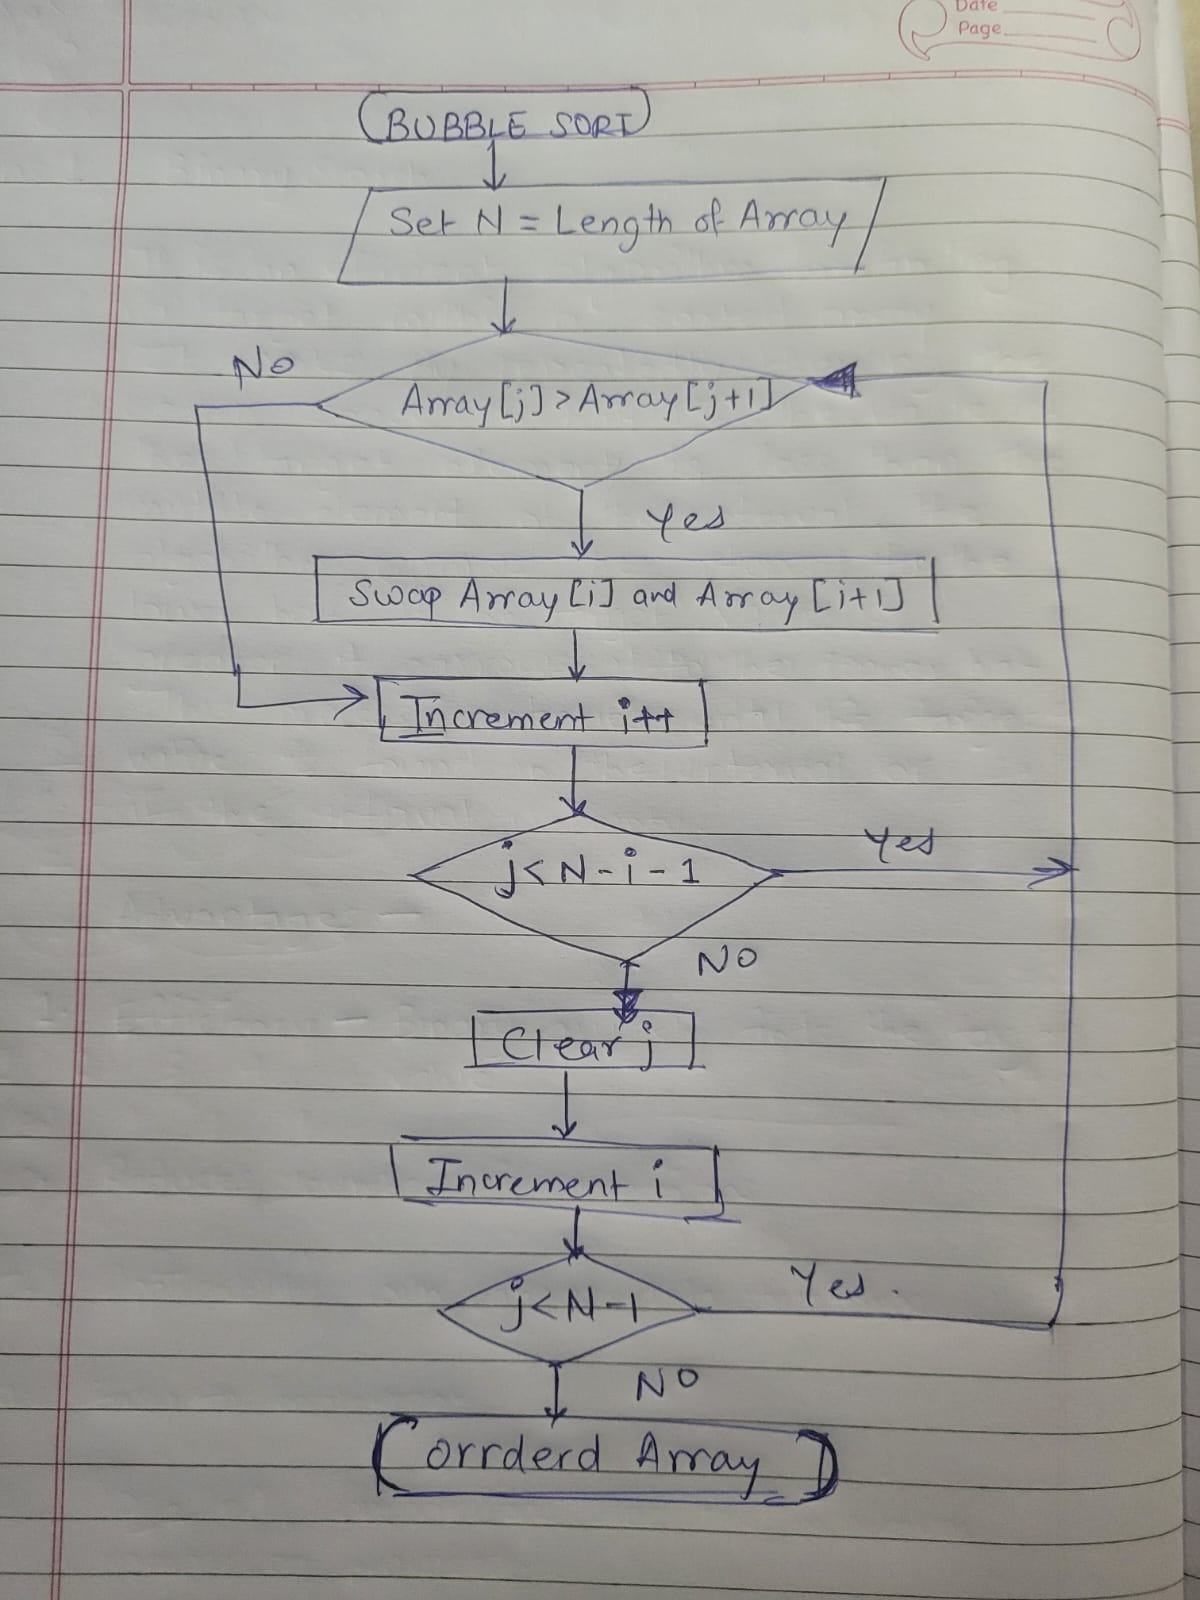 Date
Page
BUBBLE SORT
Set N = Length of Array
No
Array [j] > Array [j+1]
Yes
Swap Array [i] and Array [i+1]
Increment i++
j < N - i - 1
Yes
NO
Clear j
Increment i
j < N - 1
Yes.
NO
orrderd Array